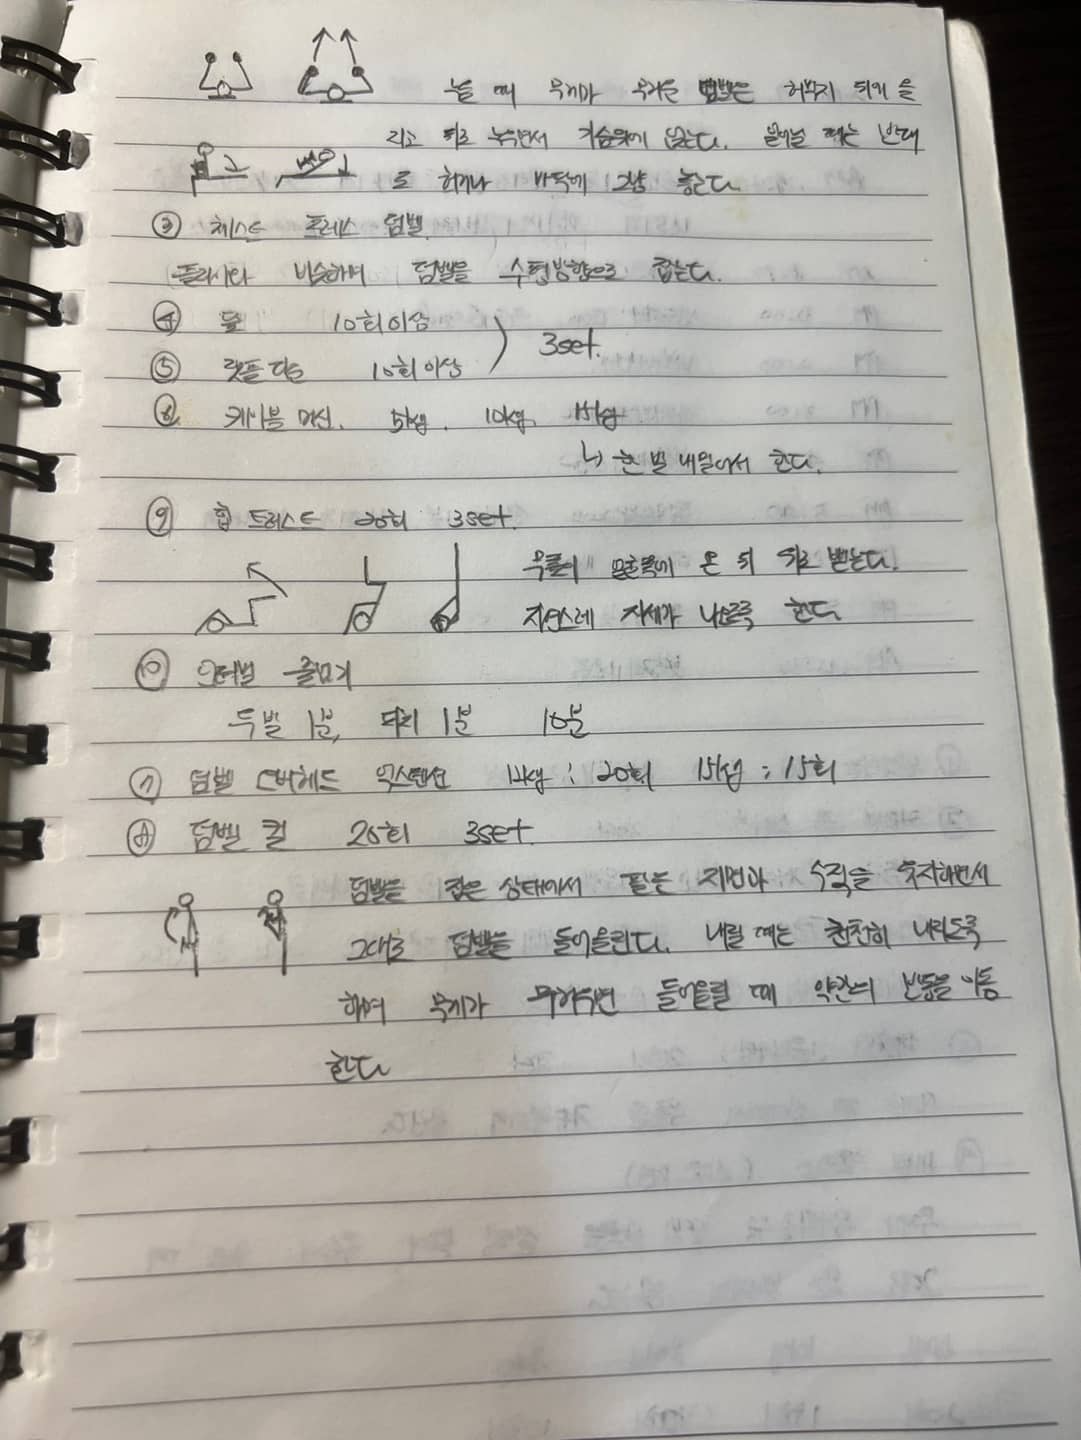 눌 때 무게가 무거운 덤벨은 허벅지 뒤에 올
리고 뒤로 누우면서 가슴위에 놓는다. 일어날 때는 반대
로 하거나 바닥에 그냥 놓는다.
③ 체스트 프레스 덤벨.
플라이와 비슷하며 덤벨을 수평방향으로 잡는다.
④ 풀 10회 이상
3set.
⑤ 랫풀다운 10회 이상
⑥ 케이블 머신. 5kg. 10kg. 15kg
↳ 한 발 내밀어서 한다.
⑨ 힙 트러스트 20회 3set.
무릎이 오 뒤 뒤로 뻗는다.
자연스레 자세가 나오도록 한다.
⑩ 인터벌 줄넘기
두발 1분, 1분 10분
⑦ 덤벨 오버헤드 익스텐션 12kg : 20회 15kg : 15회
⑧ 덤벨 컬 20회 3set.
덤벨을 잡은 상태에서 팔은 지면과 수직을 유지하면서
그대로 덤벨을 들어올린다. 내릴 때는 천천히 내리도록
하며 무게가 무거우면 들어올릴 때 약간의 반동을 이용
한다